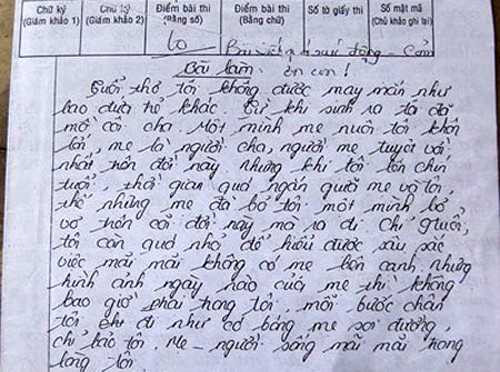 Chữ ký
(Giám khảo 1)
Chữ ký
(Giám khảo 2)
Điểm bài thi
(Bằng số)
Điểm bài thi
(Bằng chữ)
Số tờ giấy thi
Số mật mã
(Chủ khảo ghi lại)
10
Bài viết quá xúc động - Cảm
ơn con!
Bài làm
Tuổi thơ tôi không được may mắn như
bao đứa trẻ khác. Từ khi sinh ra tôi đã
mồ côi cha. Một mình mẹ nuôi tôi khôn
lớn, mẹ là người cha, người mẹ tuyệt vời
nhất trên đời này. Nhưng khi tôi lên chín
tuổi, thời gian quá ngắn giữa mẹ và tôi,
thế nhưng mẹ đã bỏ tôi một mình bơ
vơ trên cõi đời này mà ra đi. Chỉ 9 tuổi,
tôi còn quá nhỏ để hiểu được sâu sắc
việc mãi mãi không có mẹ bên cạnh. Nhưng
hình ảnh ngày nào của mẹ thì không
bao giờ phai trong tôi, mỗi bước chân
tôi đi như có bóng mẹ soi đường,
chỉ bảo tôi. Mẹ - người sống mãi mãi trong
lòng tôi.